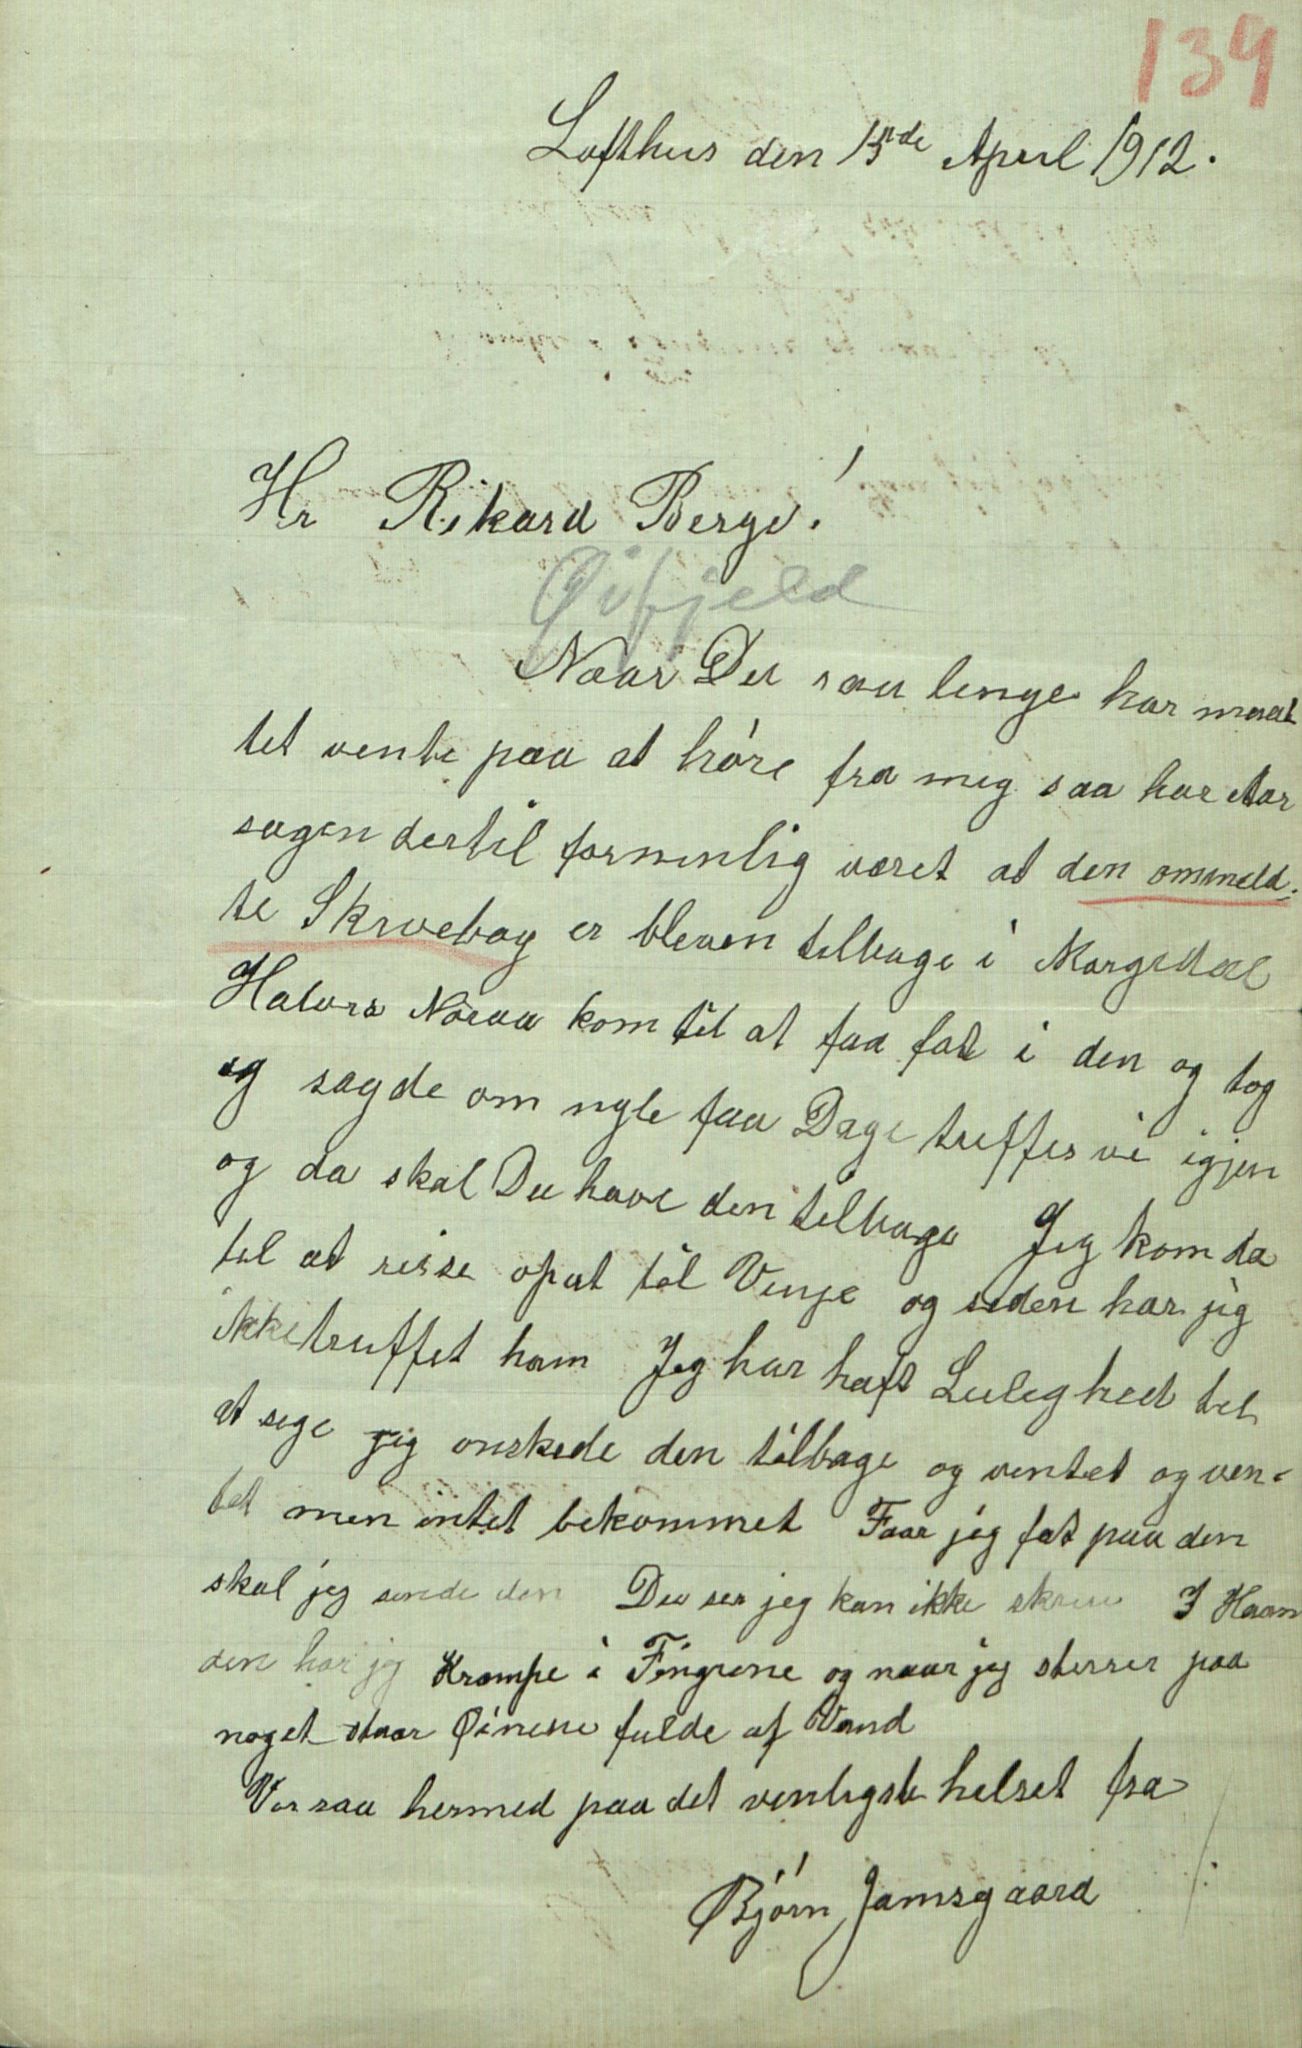 139
Lofthus den 13nde April 1912.
Hr Rikard Berge!
Øifjeld
Naar Du saa lenge har maat
tet vente paa at høre fra meg saa har Aar
sagen dertil fornemlig været at den ommeld.
te Skrivebog er bleven tilbage i Morgedal
Halvor Nöraa kom til at faa fat i den og tog
og sagde om nyle faa Dage treffes vi igjen
og da skal Du have den tilbage Jeg kom da
til at reise opat til Vinje og siden har jeg
ikke truffet ham Jeg har haft Leileghed tel
at sige jeg onskede den tilbage og ventet og ven-
tet men intet bekommet Faar jeg fat paa den
skal jeg sende den Du ser jeg kan ikke skrive I Haan
den har jeg Krampe i Fingrene og naar jeg sterrer paa
noget staar Øinene fulde af Vand
Vær saa hermed paa det venligste helset fra
Bjørn Jamsgaard